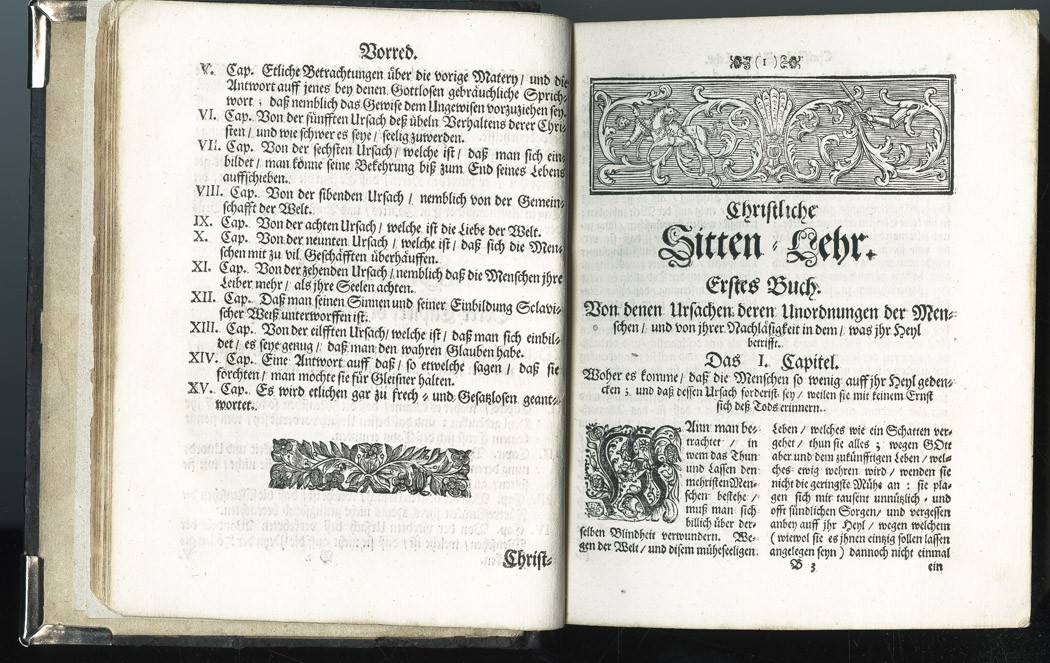 Vorred.
V. Cap. Etliche Betrachtungen über die vorige Matery / und die
Antwort auff jenes bey denen Gottlosen gebräuchliche Sprich-
wort ; daß nemblich das Gewise dem Ungewisen vorzuziehen sey.
VI. Cap. Von der fünfften Ursach deß übeln Verhaltens derer Chri-
sten / und wie schwer es seye / seelig zuwerden.
VII. Cap. Von der sechsten Ursach / welche ist / daß man sich ein-
bildet / man könne seine Bekehrung biß zum End seines Lebens
auffschieben.
VIII. Cap. Von der sibenden Ursach / nemblich von der Gemein-
schafft der Welt.
IX. Cap. Von der achten Ursach / welche ist die Liebe der Welt.
X. Cap. Von der neunten Ursach / welche ist / daß sich die Men-
schen mit zu vil Geschäfften überhäuffen.
XI. Cap. Von der zehenden Ursach / nemblich daß die Menschen jhre
Leiber mehr / als jhre Seelen achten.
XII. Cap. Daß man seinen Sinnen und seiner Einbildung Sclavi-
scher Weiß unterworffen ist.
XIII. Cap. Von der eilfften Ursach / welche ist / daß man sich einbil-
det / es seye genug / daß man den wahren Glauben habe.
XIV. Cap. Eine Antwort auff daß / so etwelche sagen / daß sie
förchten / man möchte sie für Gleisner halten.
XV. Cap. Es wird etlichen gar zu frech- und Gesatzlosen geant-
wortet.
Christ-
(1)
Christliche
Sitten-Lehr.
Erstes Buch.
Von denen Ursachen deren Unordnungen der Men-
schen / und von jhrer Nachläßigkeit in dem / was jhr Heyl
betrifft.
Das I. Capitel.
Woher es komme / daß die Menschen so wenig auff jhr Heyl geden-
cken ; und daß dessen Ursach forderist sey / weilen sie mit keinem Ernst
sich deß Tods erinnern.
WAnn man be-
trachtet / in
wem das Thun
und Lassen den
mehristen Men-
schen bestehe /
muß man sich
billich über der-
selben Blindheit verwundern. We-
gen der Welt / und disem müheseeligen
Leben / welches wie ein Schatten ver-
gehet / thun sie alles ; wegen GOtt
aber und dem zukünfftigen Leben / wel-
ches ewig wehren wird / wenden sie
nicht die geringste Mühe an : sie pla-
gen sich mit tausent unnützlich- und
offt sündlichen Sorgen / und vergessen
anbey auff jhr Heyl / wegen welchem
( wiewol sie es jhnen eintzig sollen lassen
angelegen seyn ) dannoch nicht einmal
B 3 ein